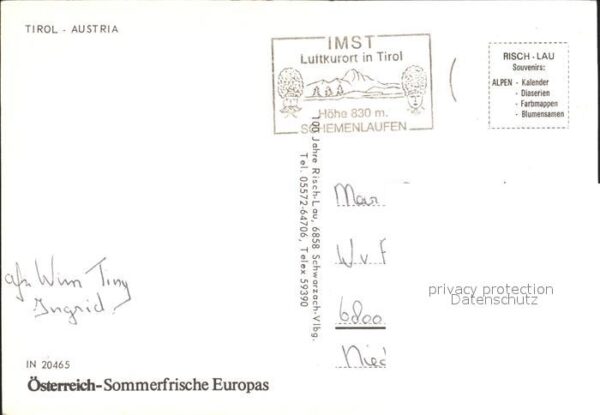 TIROL - AUSTRIA
IMST
Luftkurort in Tirol
Höhe 830 m.
SCHEMENLAUFEN
RISCH-LAU
Souvenirs:
ALPEN - Kalender
- Diaserien
- Farbmappen
- Blumensamen
100 Jahre Risch-Lau, 6858 Schwarzach-Vlbg.
Tel. 05572-64706, Telex 59390
afz Wim Tiny
Ingrid
6800
privacy protection
Datenschutz
IN 20465
Österreich-Sommerfrische Europas